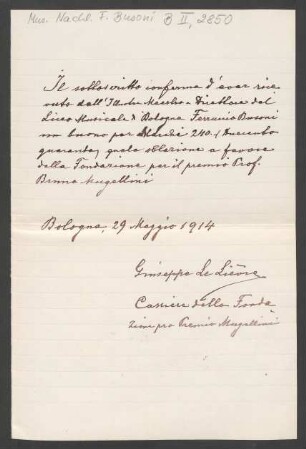 Mus. Nachl. F. Busoni B II, 2850
Il sottoscritto conferma d'aver rice-
vuto dall'Illustre Maestro e Direttore del
Liceo Musicale di Bologna Ferruccio Busoni
un buono per Marchi 240. (duecento
quaranta) quale oblazione a favore
della Fondazione per il premio Prof.
Bruno Mugellini
Bologna, 29 Maggio 1914
Giuseppe Le Lièvre
Cassiere della Fonda-
zione pro Premio Mugellini